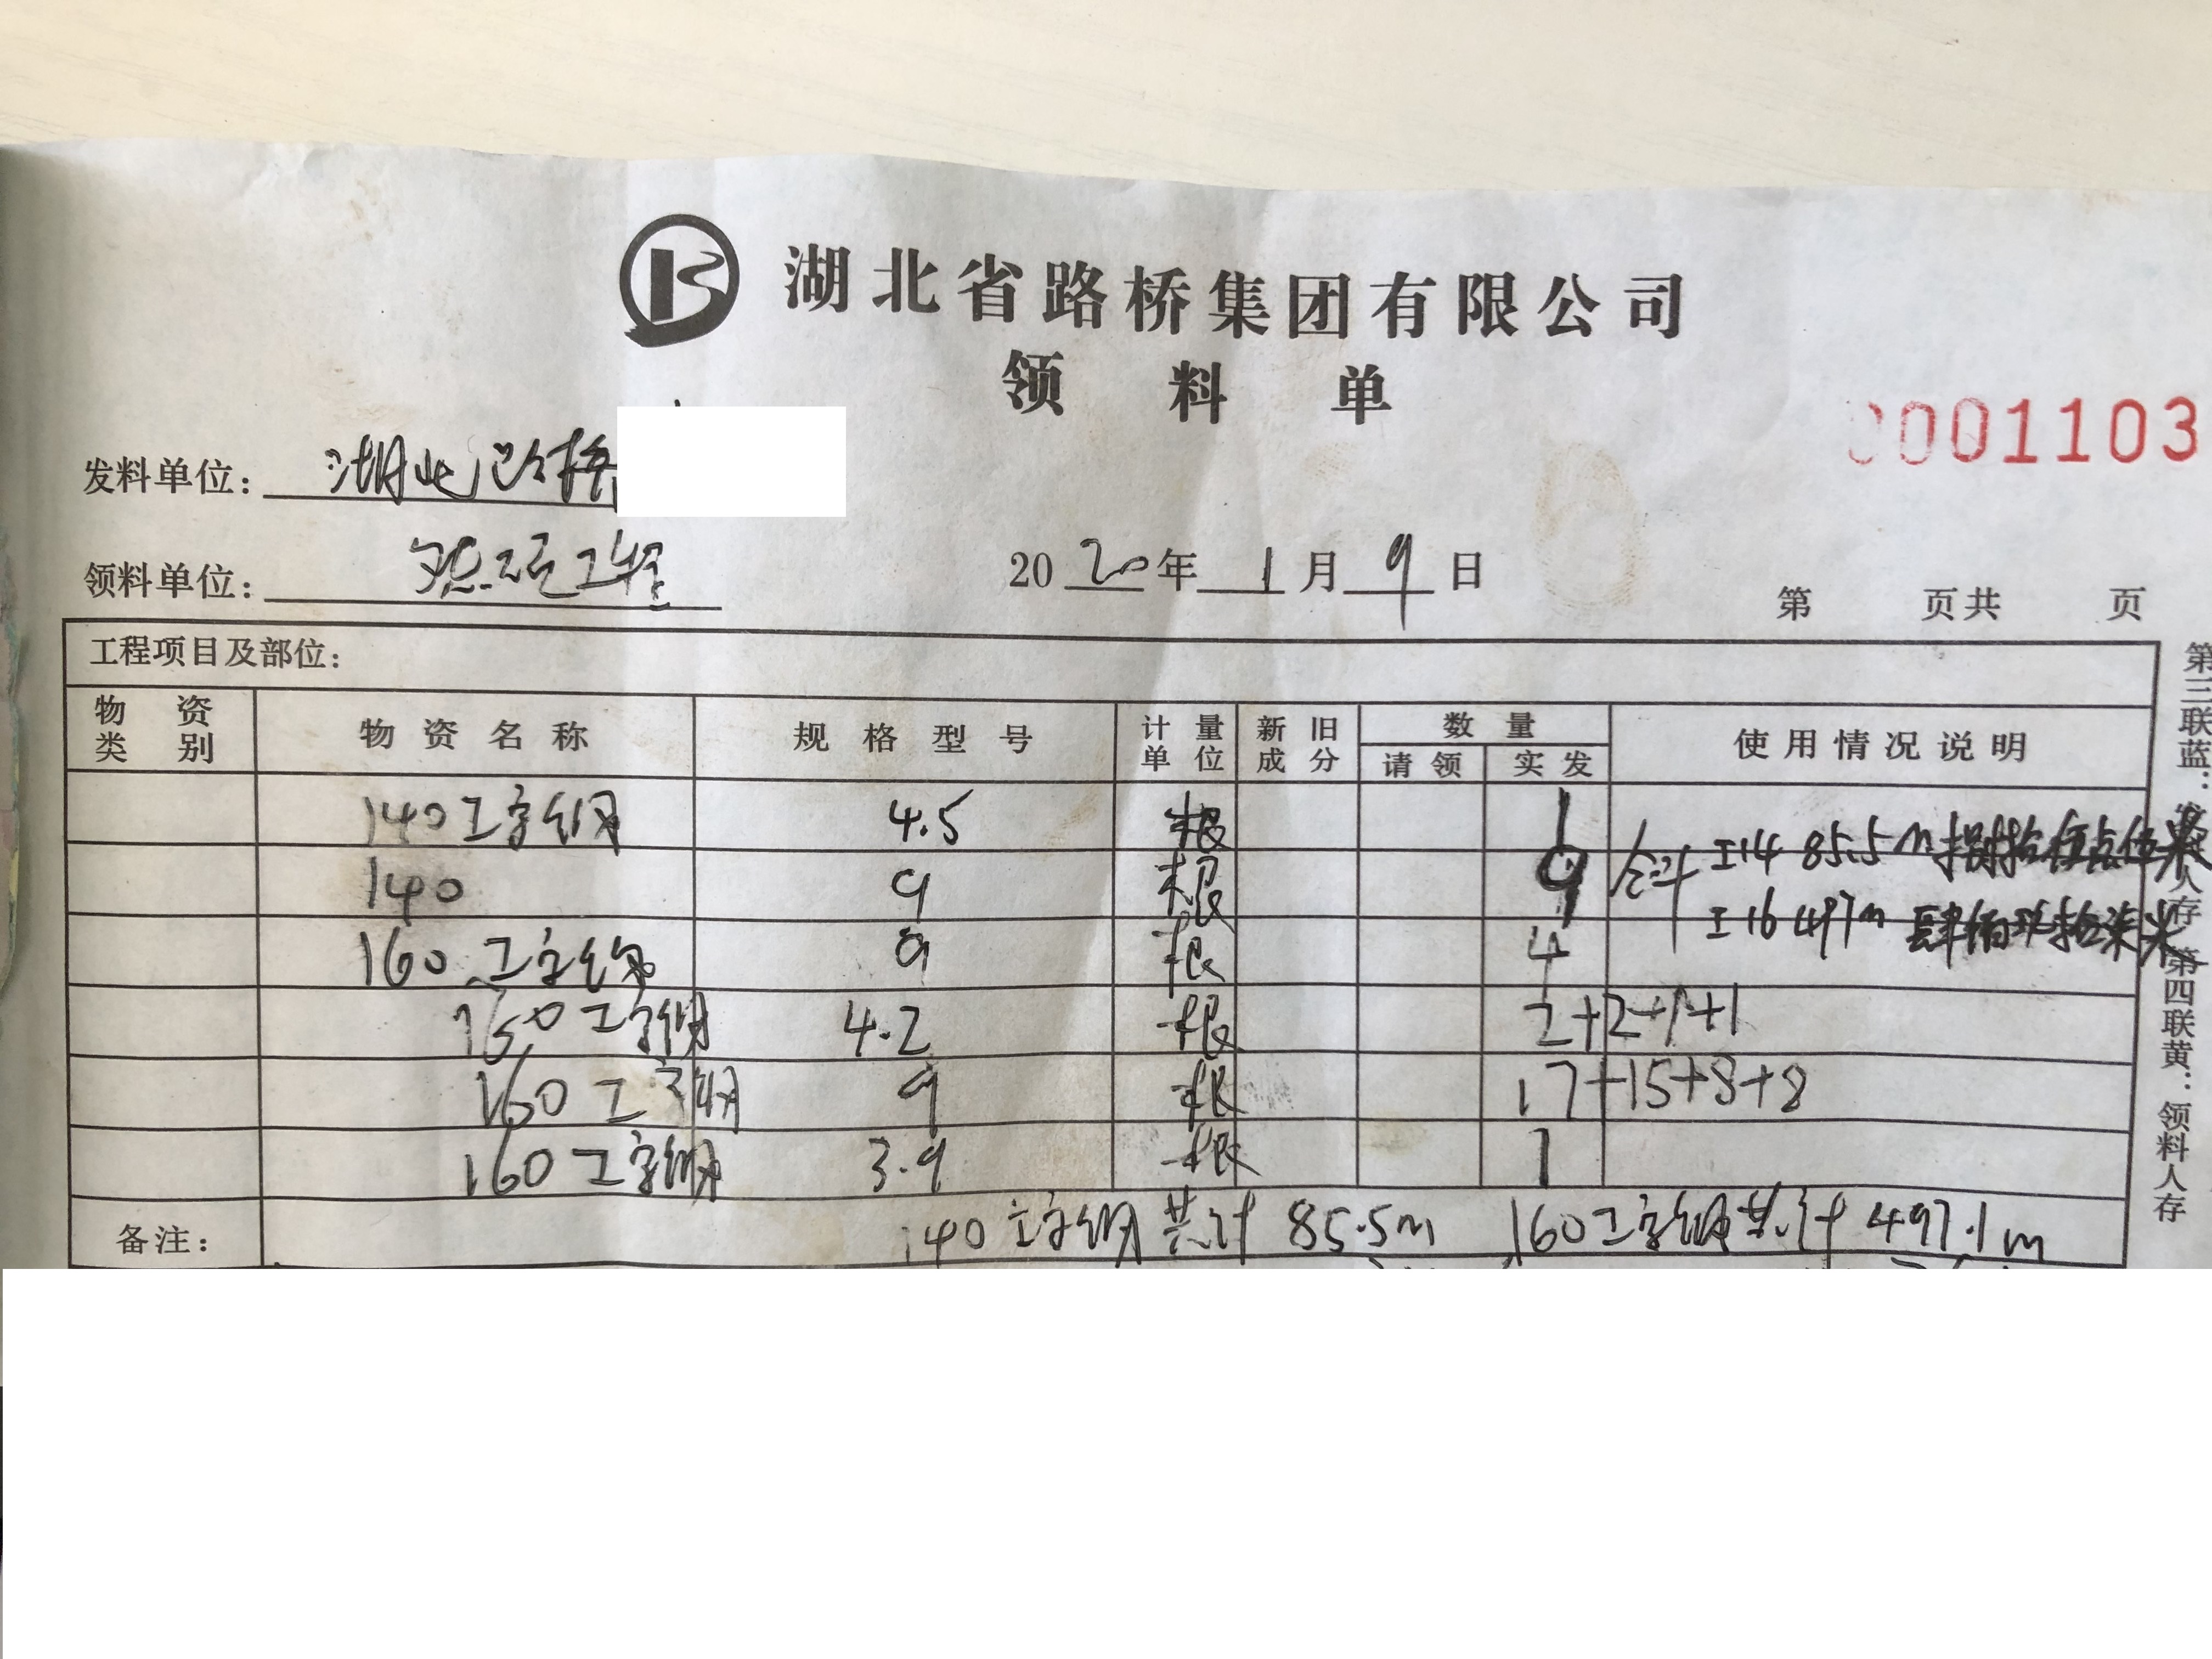 湖北省路桥集团有限公司
领料单
0001103
发料单位：湖北路桥
领料单位：工程
2020年1月9日
第 页共 页
工程项目及部位：
物资类别 物资名称 规格型号 计量单位 新旧成分 数量 请领 实发 使用情况说明
140工字钢 4.5 根 1
140 9 根 9
合计 I14 85.5m 捌拾伍点伍米
I16 497m 肆佰玖拾柒米
160工字钢 9 根 4
160工字钢 4.2 根 2+2+1+1
160工字钢 9 根 17+15+8+8
160工字钢 3.9 根 1
备注：140工字钢共计 85.5m 160工字钢共计 497.1m
第三联蓝：发料人存 第四联黄：领料人存